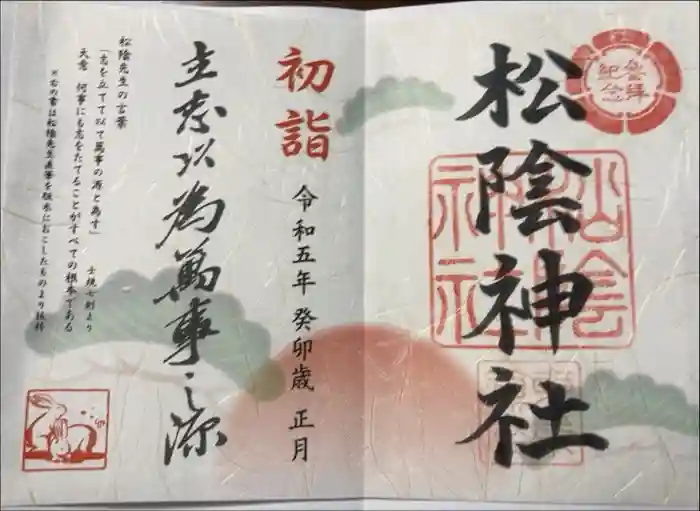 参拝
記念
松陰神社
松陰
神社
初詣
令和五年 癸卯歳 正月
立志以為萬事之源
松陰先生の言葉
「志を立てて以て萬事の源と為す」
士規七則より
大意 何事にも志をたてることがすべての根本である
※右の書は松陰先生直筆を版木におこしたものより抜粋